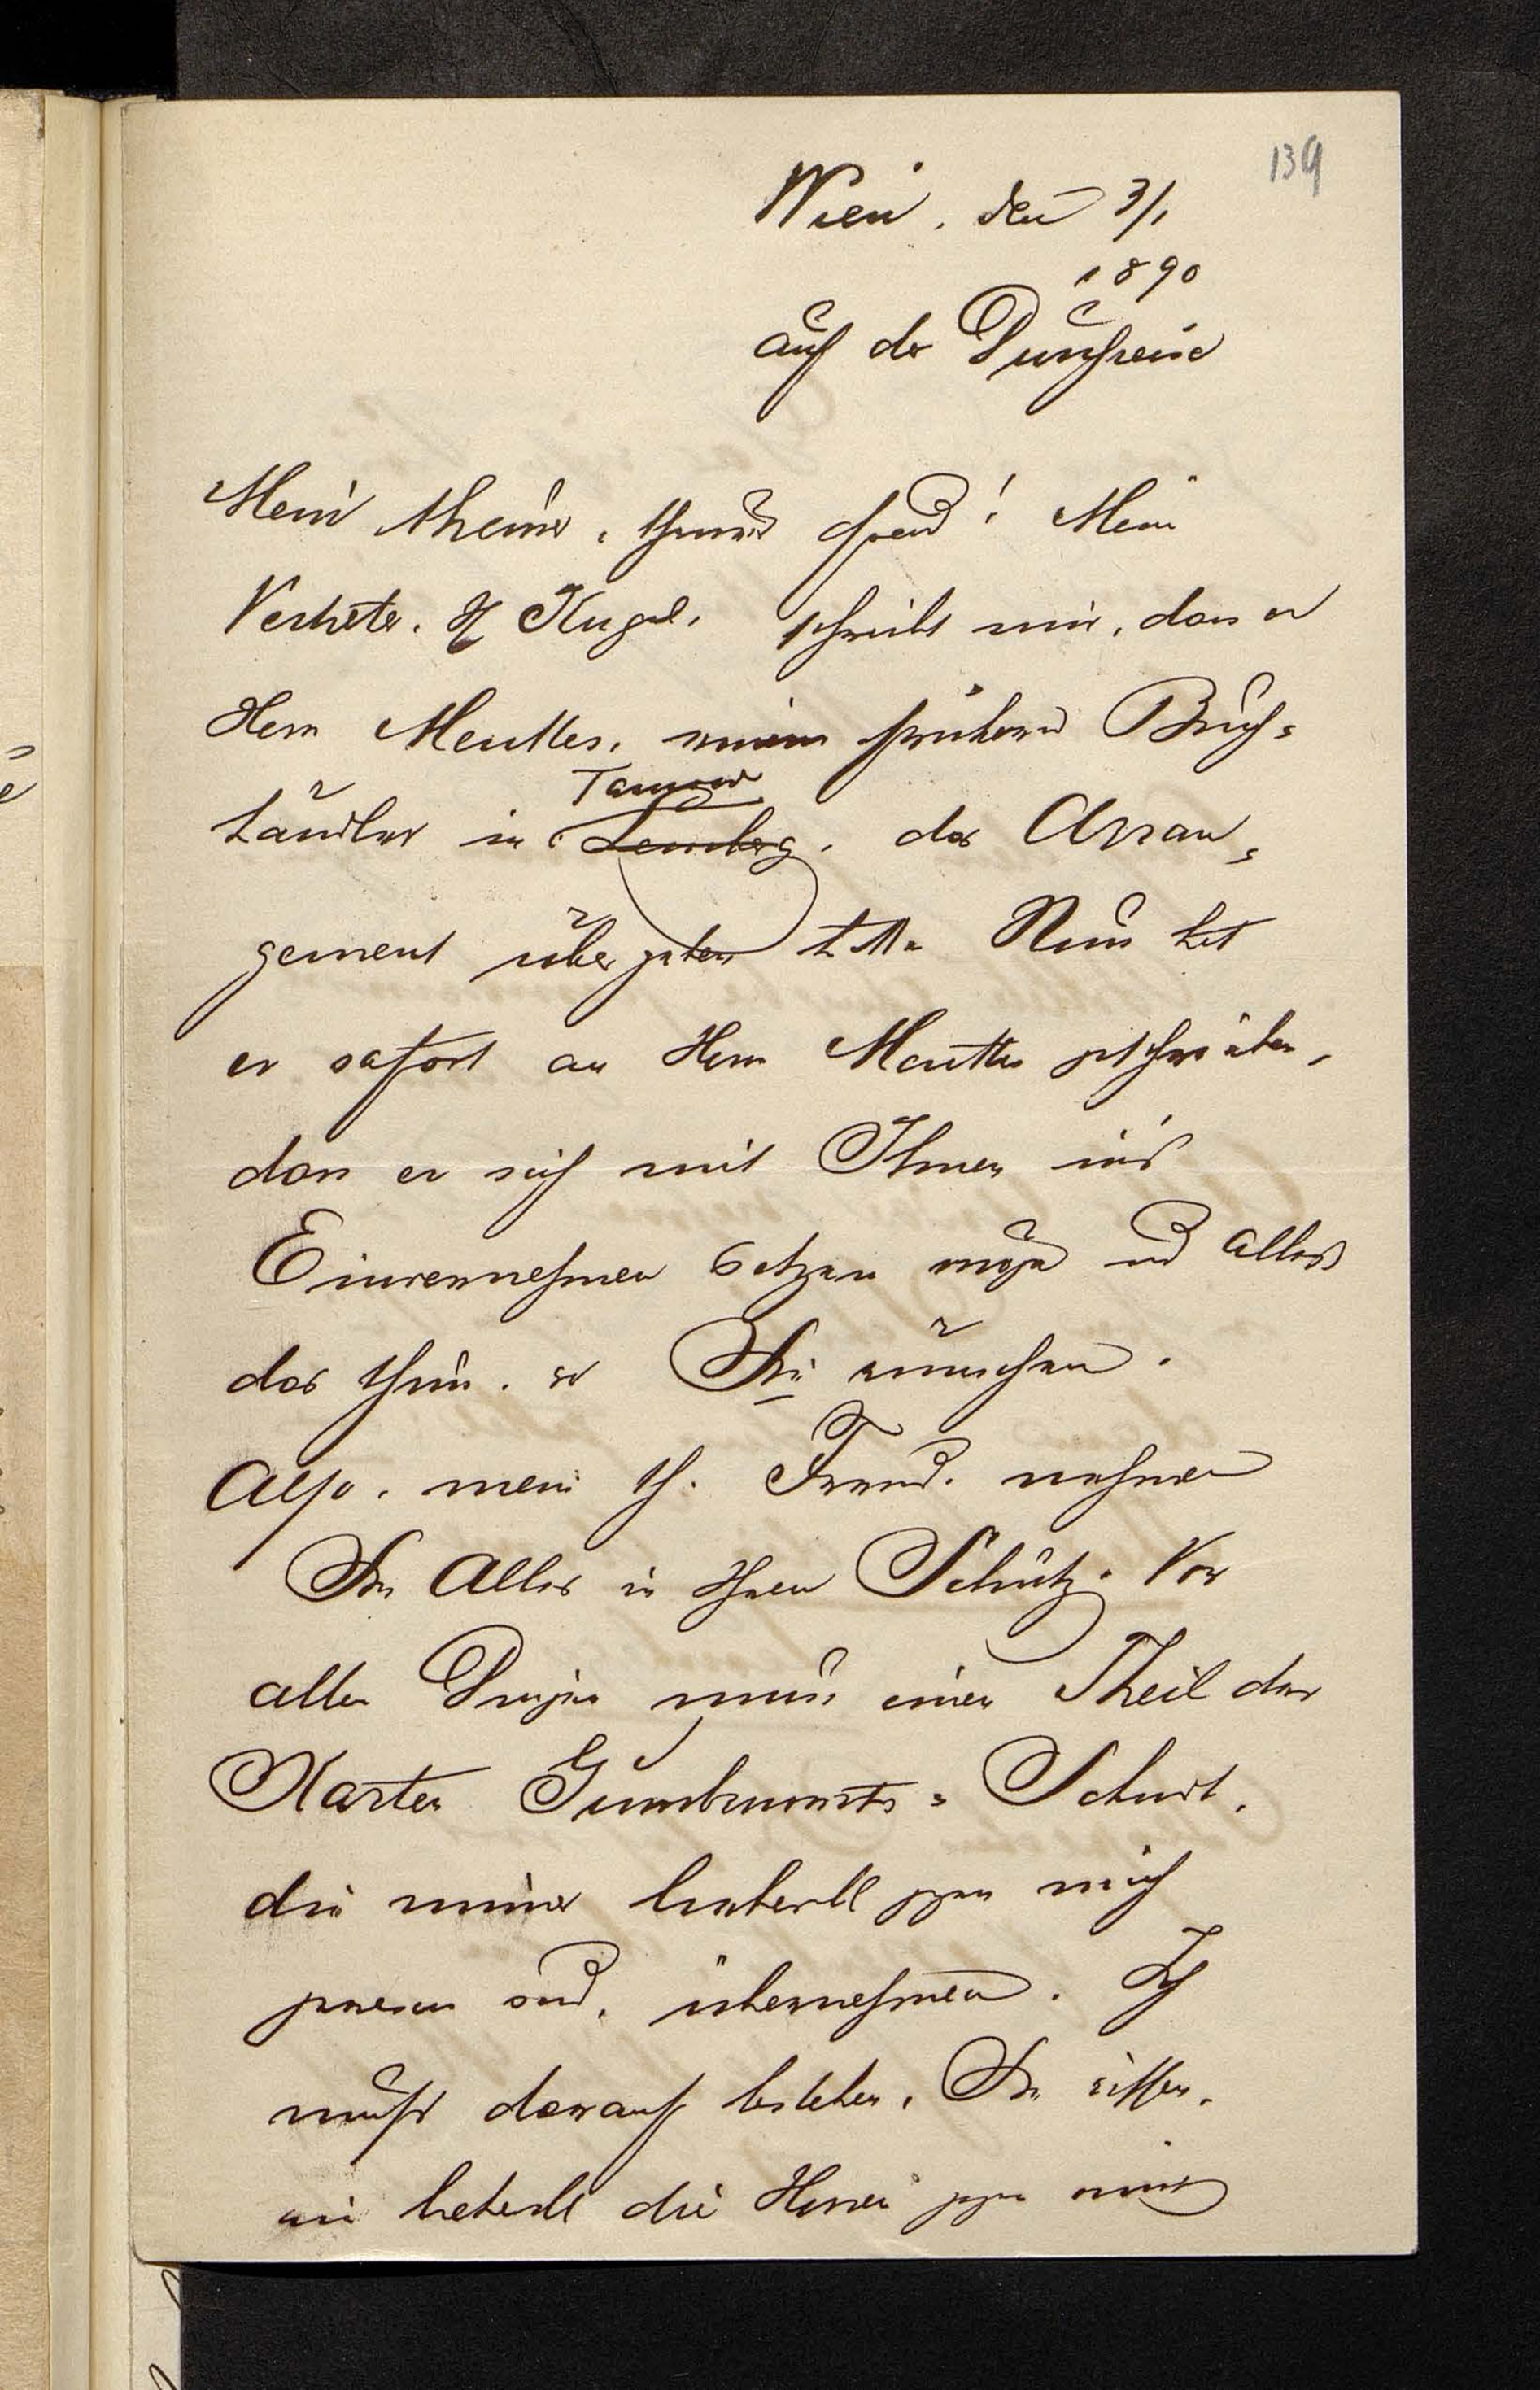 139
Wien, den 3/1
1890
auf der Durchreise
Mein theurer, Freund! Mein
Vertreter, H Kugel, schreibt mir, dass er
Herrn Meutter, meinem früheren Buch=
händler in Tarnow
Lemberg, das Arran=
gement übergeben hätte. Nun hat
er sofort an Herrn Meutter geschrieben,
dass er sich mit Ihnen ins
Einvernehmen setzen möge und alles
das thun, was Sie wünschen.
Also, mein th. Freund, nehmen
Sie Alles in Ihren Schutz. Vor
allen Dingen muss einen Theil der
Karten Gumbinowicz = Schmidt,
die immer liebevoll gegen mich
gewesen sind, übernehmen. Ich
muß darauf bestehen, Sie wissen,
wie liebevoll die Herren gegen mich